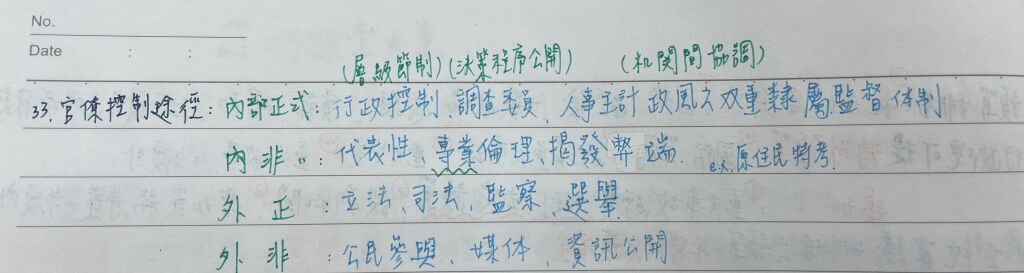 No.
Date : :
(層級節制)(決策程序公開) (机関間協調)
33.官僚控制途徑:內部正式:行政控制、調查委員、人事主計政風之双重隸屬監督体制
內非〃:代表性、專業倫理、揭發弊端. ex.原住民特考.
外正:立法、司法、監察、選舉.
外非:公民參與、媒体、資訊公開